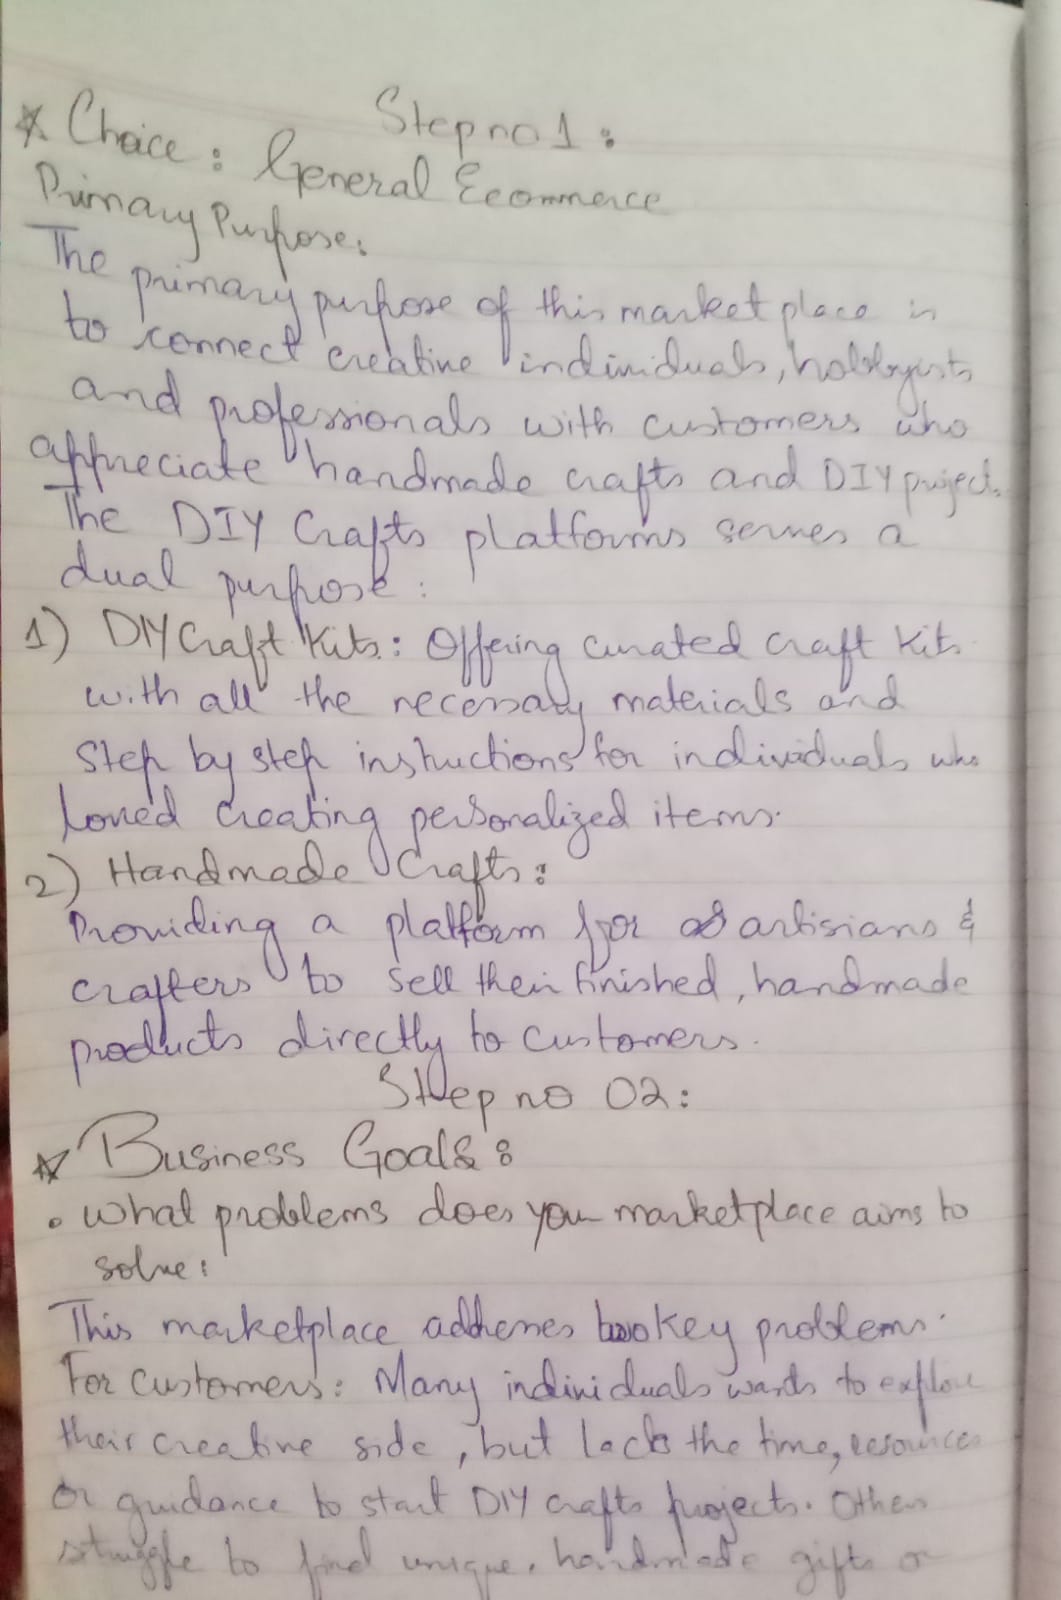 Step no 1 :
Choice : General Ecommerce
Primary Purpose:
The primary purpose of this marketplace is
to connect creative individuals, hobbyists
and professionals with customers who
appreciate handmade crafts and DIY project.
The DIY Crafts platforms serves a
dual purpose :
1) DIY Craft Kits : Offering curated craft kits
with all the necessary materials and
Step by step instructions for individuals who
loved creating personalized items.
2) Handmade Crafts :
Providing a platform for artisians &
crafters to sell their finished, handmade
products directly to customers.
Step no 02 :
Business Goals :
• What problems does your marketplace aims to
solve :
This marketplace addresses two key problems.
For customers : Many individuals wants to explore
their creative side, but lack the time, resources
or guidance to start DIY crafts projects. Others
struggle to find unique, handmade gifts or